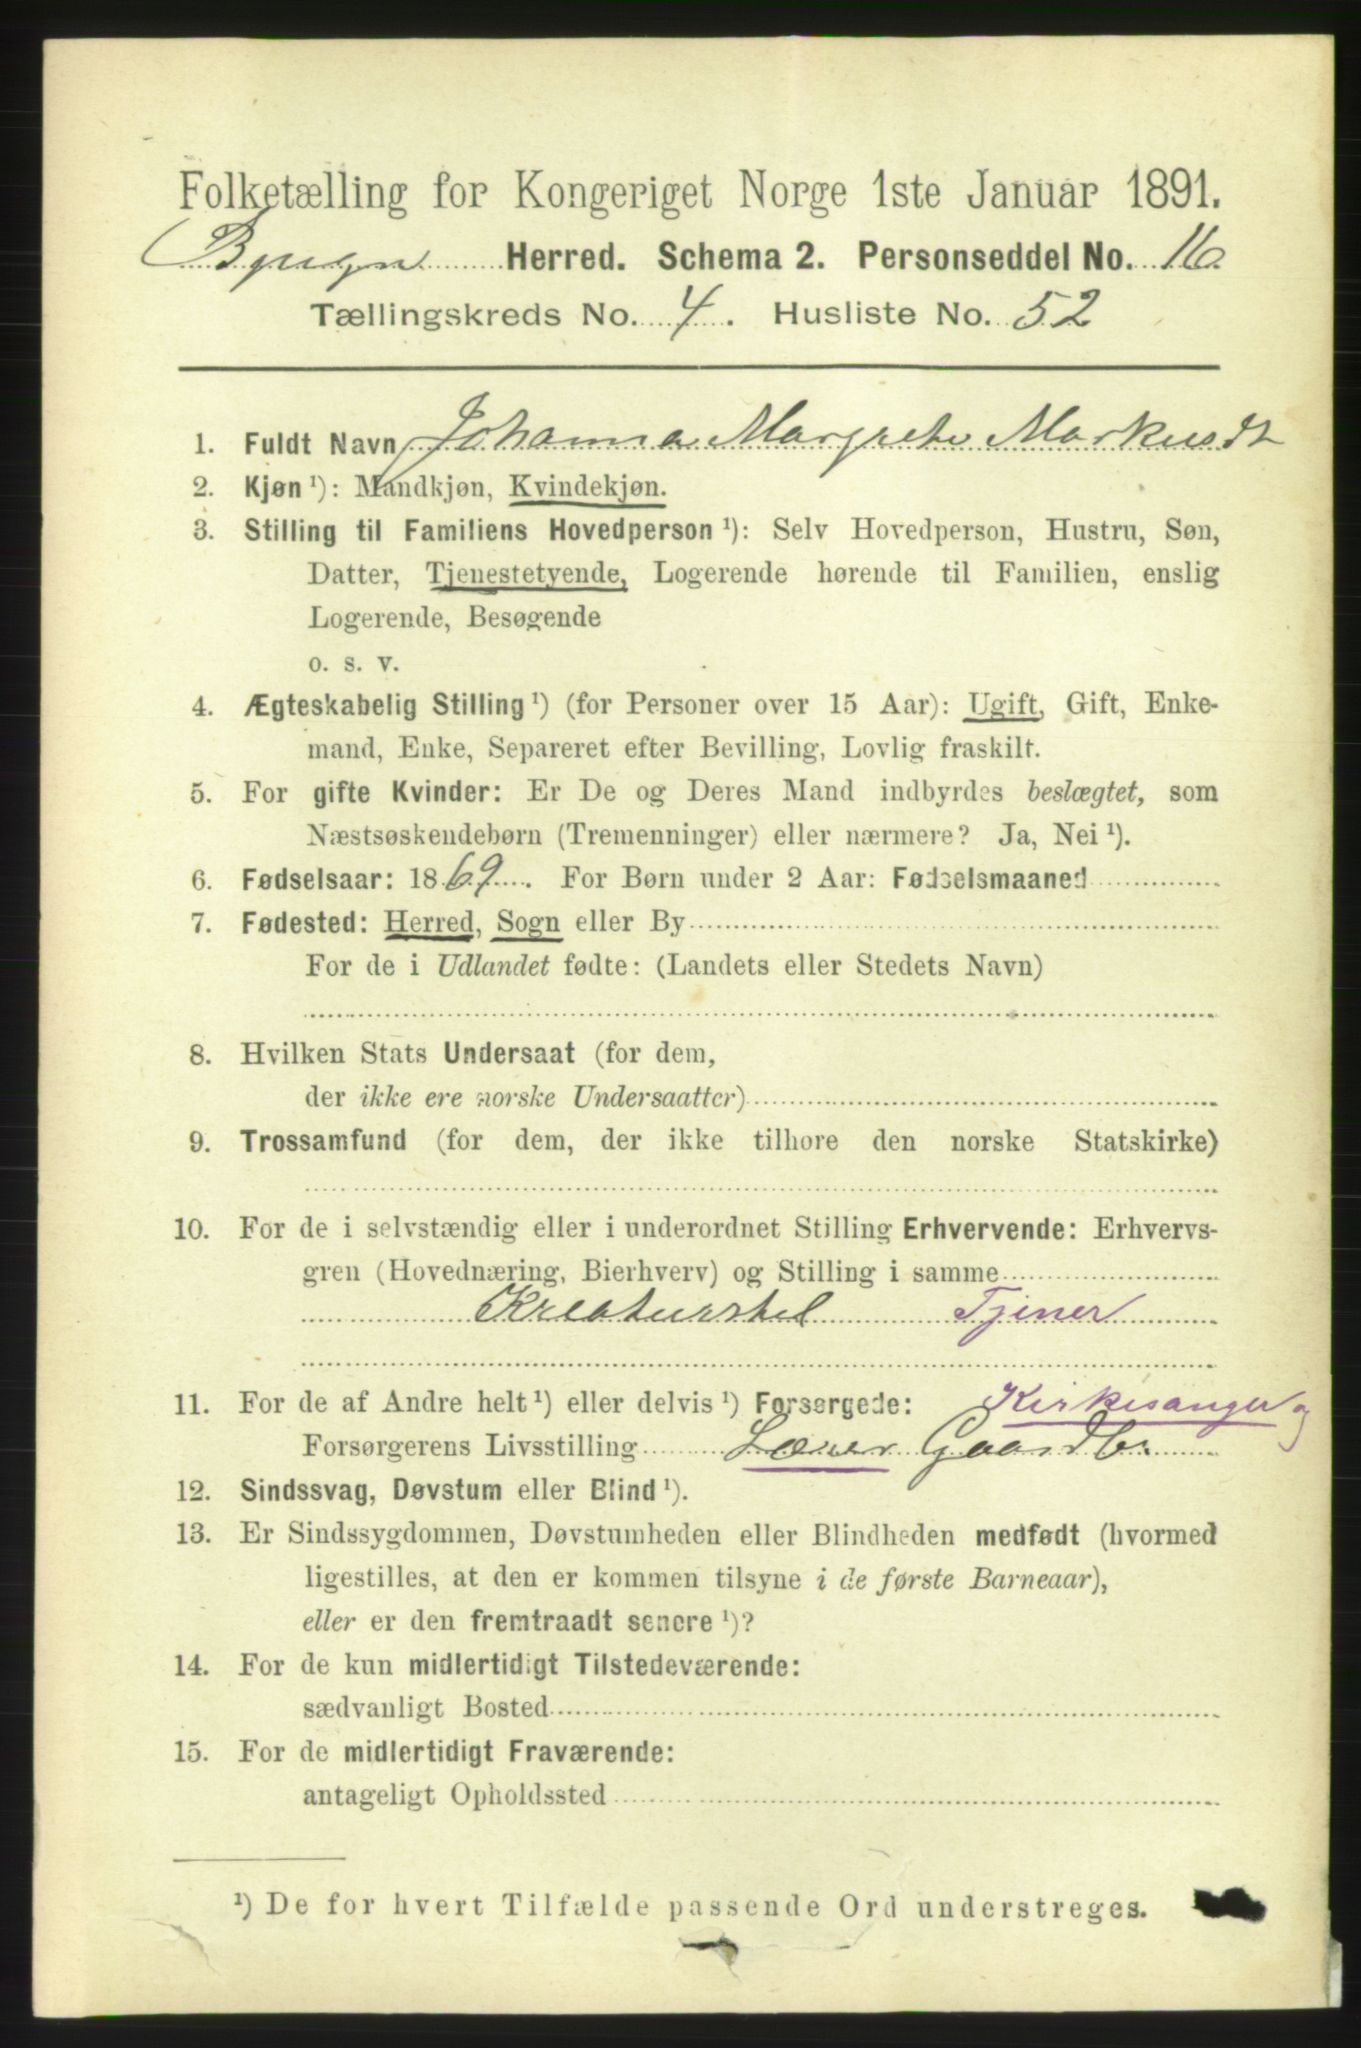 Folketælling for Kongeriget Norge 1ste Januar 1891.
Bjugn Herred. Schema 2. Personseddel No. 16.
Tællingskreds No. 4. Husliste No. 52
1. Fuldt Navn Johanna Margrete Markusdt
2. Kjøn ¹): Mandkjøn, Kvindekjøn.
3. Stilling til Familiens Hovedperson ¹): Selv Hovedperson, Hustru, Søn,
Datter, Tjenestetyende, Logerende hørende til Familien, enslig
Logerende, Besøgende
o. s. v.
4. Ægteskabelig Stilling ¹) (for Personer over 15 Aar): Ugift, Gift, Enke-
mand, Enke, Separeret efter Bevilling, Lovlig fraskilt.
5. For gifte Kvinder: Er De og Deres Mand indbyrdes beslægtet, som
Næstsøskendebørn (Tremenninger) eller nærmere? Ja, Nei ¹).
6. Fødselsaar: 1869. For Børn under 2 Aar: Fødselsmaaned
7. Fødested: Herred, Sogn eller By
For de i Udlandet fødte: (Landets eller Stedets Navn)
8. Hvilken Stats Undersaat (for dem,
der ikke ere norske Undersaatter)
9. Trossamfund (for dem, der ikke tilhore den norske Statskirke)
10. For de i selvstændig eller i underordnet Stilling Erhvervende: Erhvervs-
gren (Hovednæring, Bierhverv) og Stilling i samme
Kreaturstel Tjener
11. For de af Andre helt ¹) eller delvis ¹) Forsørgede: Kirkesanger og
Forsørgerens Livsstilling Lærer Gaardbr
12. Sindssvag, Døvstum eller Blind ¹).
13. Er Sindssygdommen, Døvstumheden eller Blindheden medfødt (hvormed
ligestilles, at den er kommen tilsyne i de første Barneaar),
eller er den fremtraadt senere ¹)?
14. For de kun midlertidigt Tilstedeværende:
sædvanligt Bosted
15. For de midlertidigt Fraværende:
antageligt Opholdssted
¹) De for hvert Tilfælde passende Ord understreges.